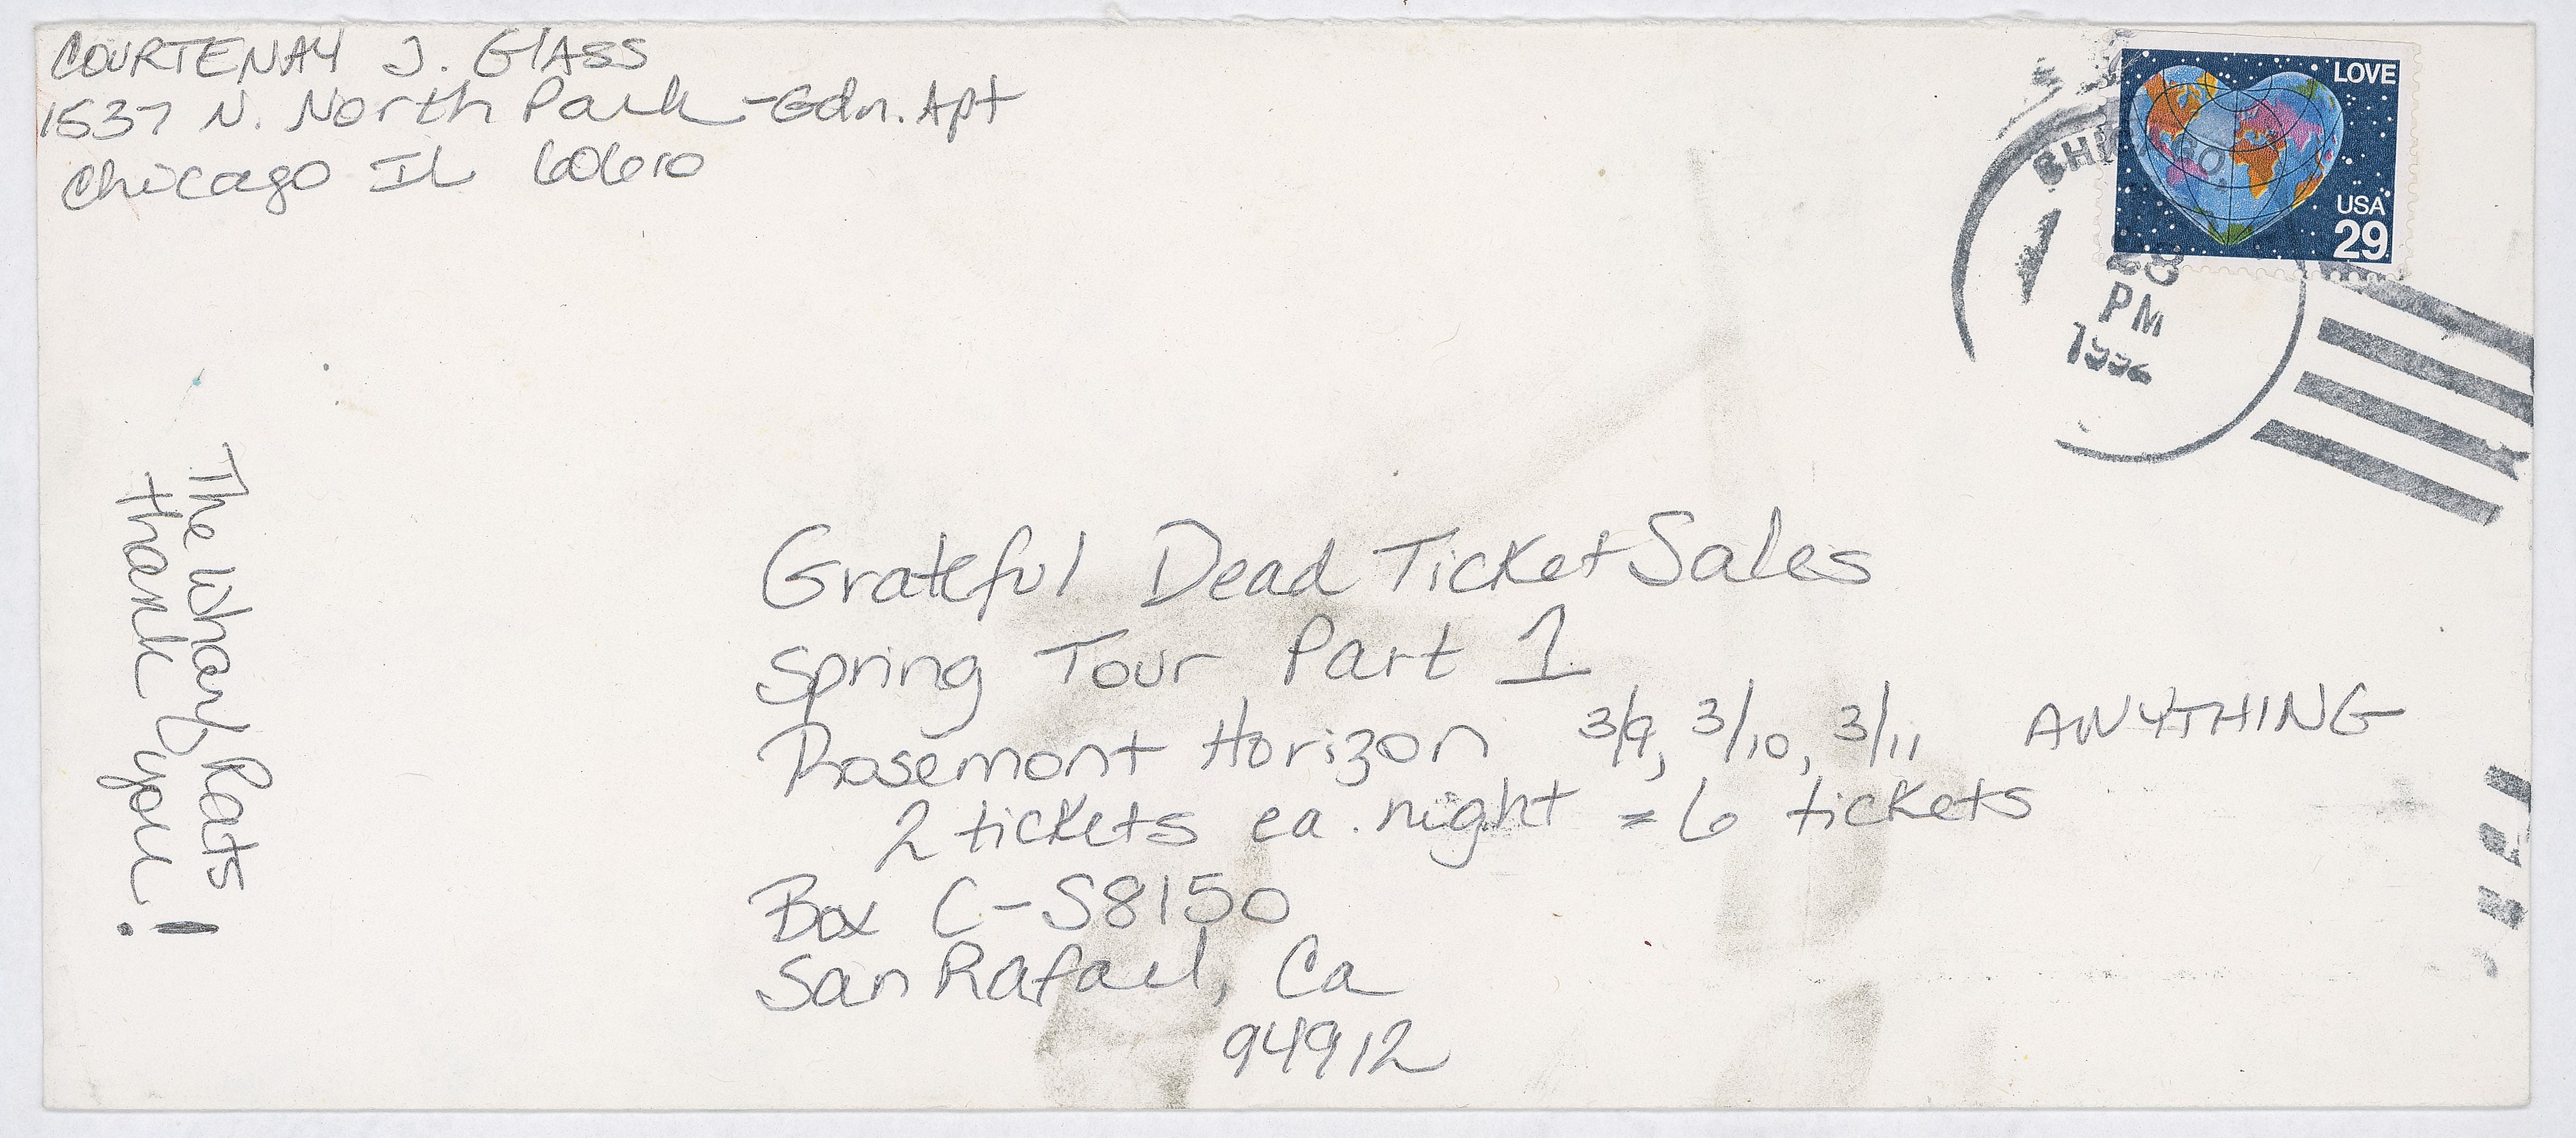 COURTENAY J. GlASS
1537 N. North Park - Gdn. Apt
Chicago IL 60610
LOVE
USA
29
CHICAGO,
28
PM
Grateful Dead Ticket Sales
Spring Tour Part 1
Rosemont Horizon 3/9, 3/10, 3/11 ANYTHING
2 tickets ea. night = 6 tickets
Box C-S8150
San Rafael, Ca
94912
The Wharf Rats
thank you!!